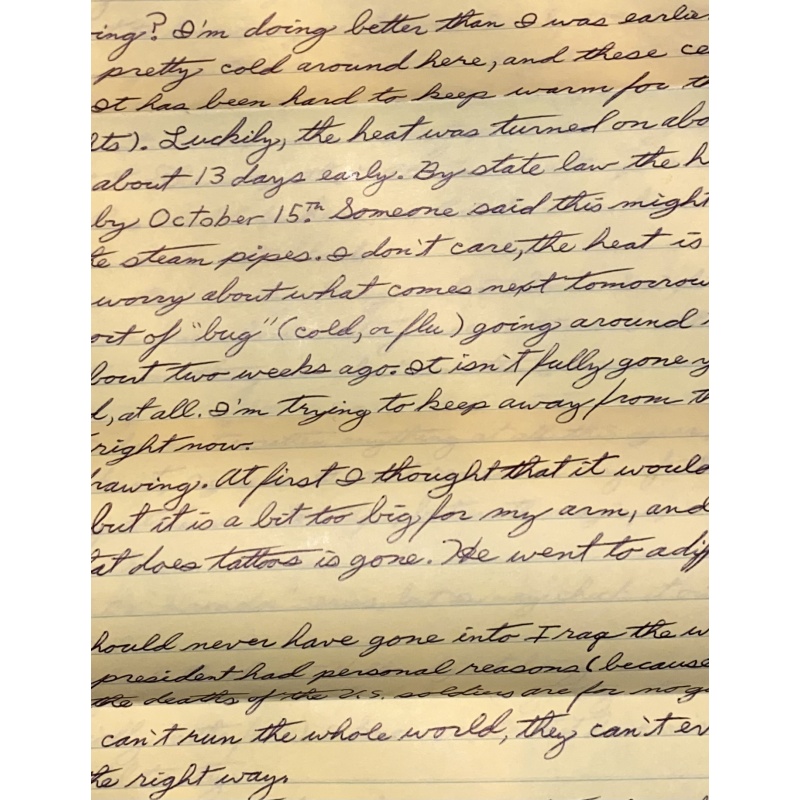 ing? I'm doing better than I was earlie
pretty cold around here, and these ce
It has been hard to keep warm for th
lts). Luckily, the heat was turned on abo
about 13 days early. By state law the h
by October 15.Th Someone said this might
te steam pipes. I don't care, the heat is
worry about what comes next tomorrow
ort of "bug" (cold, or flu) going around
bout two weeks ago. It isn't fully gone y
l, at all. I'm trying to keep away from th
right now.
rawing. At first I thought that it would
but it is a bit too big for my arm, and
at does tattoos is gone. He went to a diff
hould never have gone into Iraq the w
president had personal reasons (because
the deaths of the U.S. soldiers are for no go
can't run the whole world, they can't ev
he right way.